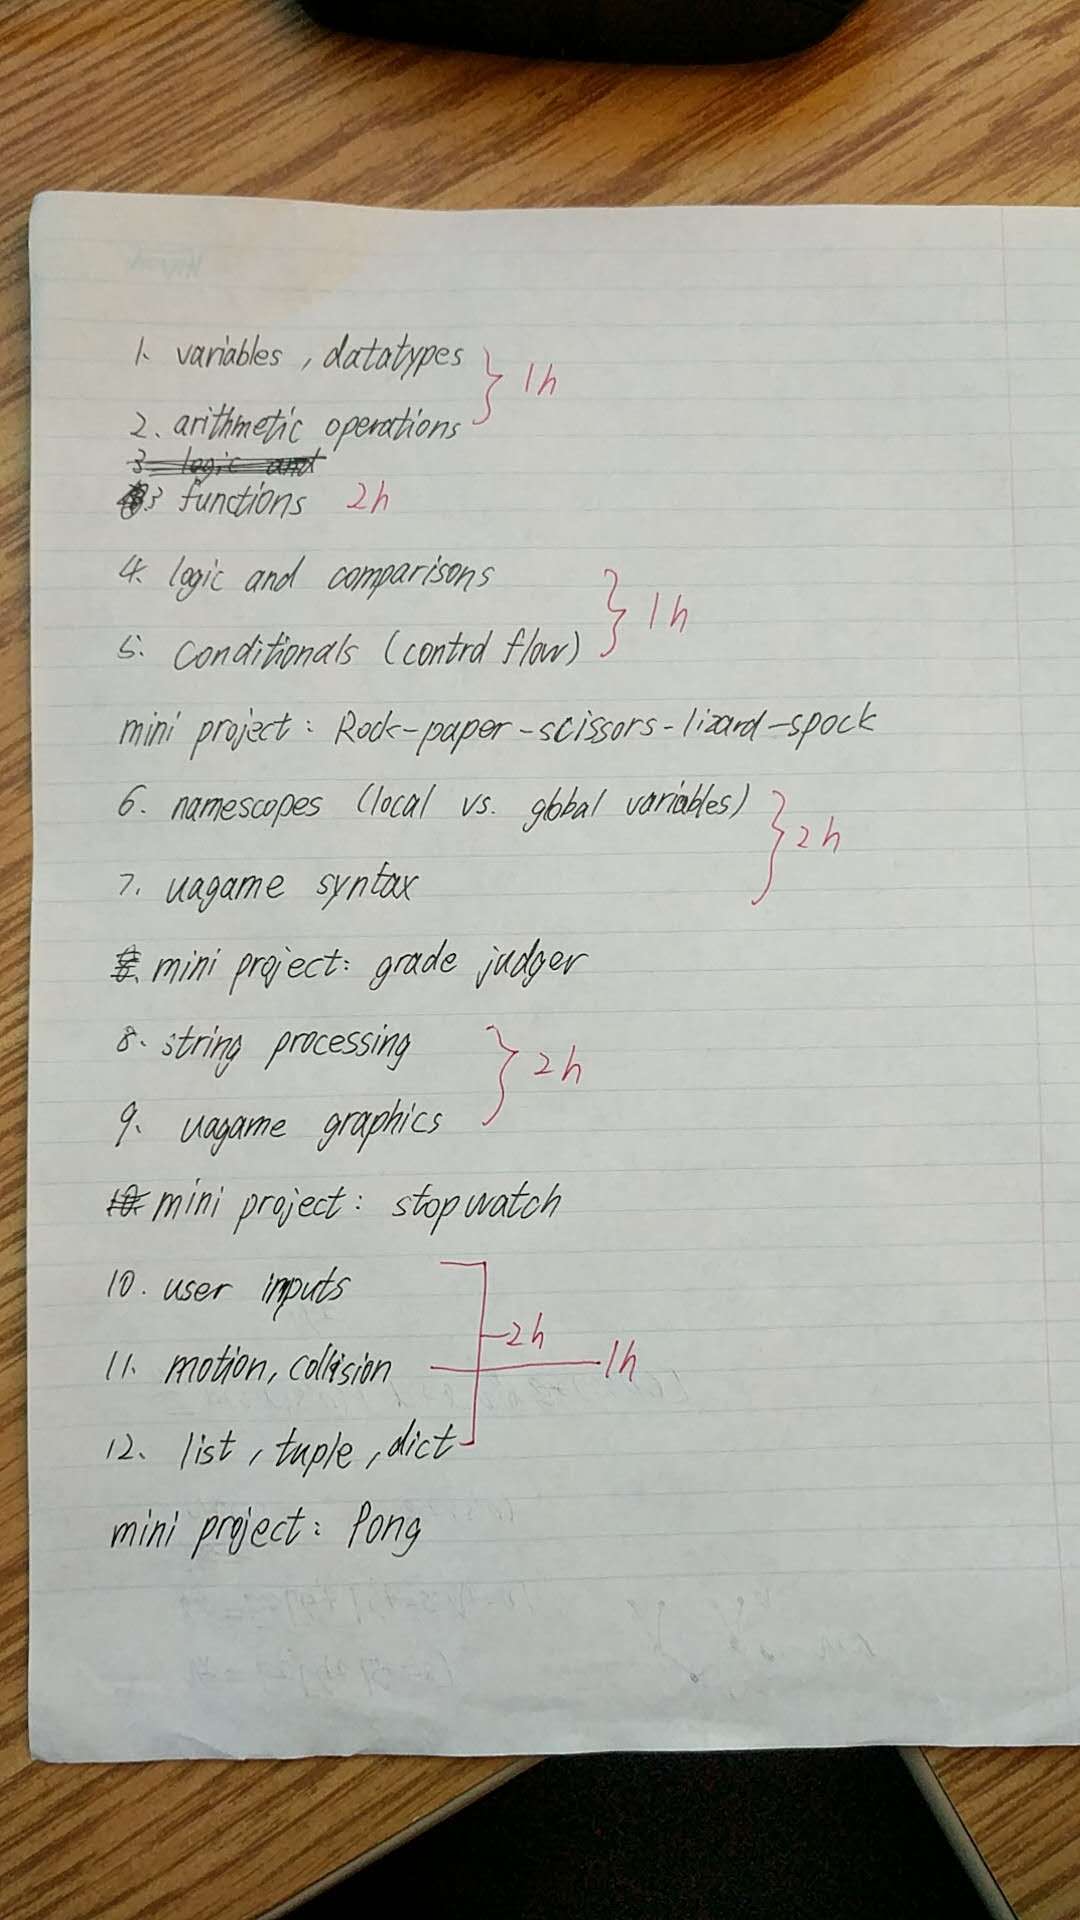 1. variables, datatypes } 1h
2. arithmetic operations
3. logic and
3 functions 2h
4. logic and comparisons } 1h
5. conditionals (control flow)
mini project: Rock-paper-scissors-lizard-spock
6. namescopes (local vs. global variables) } 2h
7. uagame syntax
mini project: grade judger
8. string processing } 2h
9. uagame graphics
mini project: stopwatch
10. user inputs
2h
11. motion, collision 1h
12. list, tuple, dict
mini project: Pong